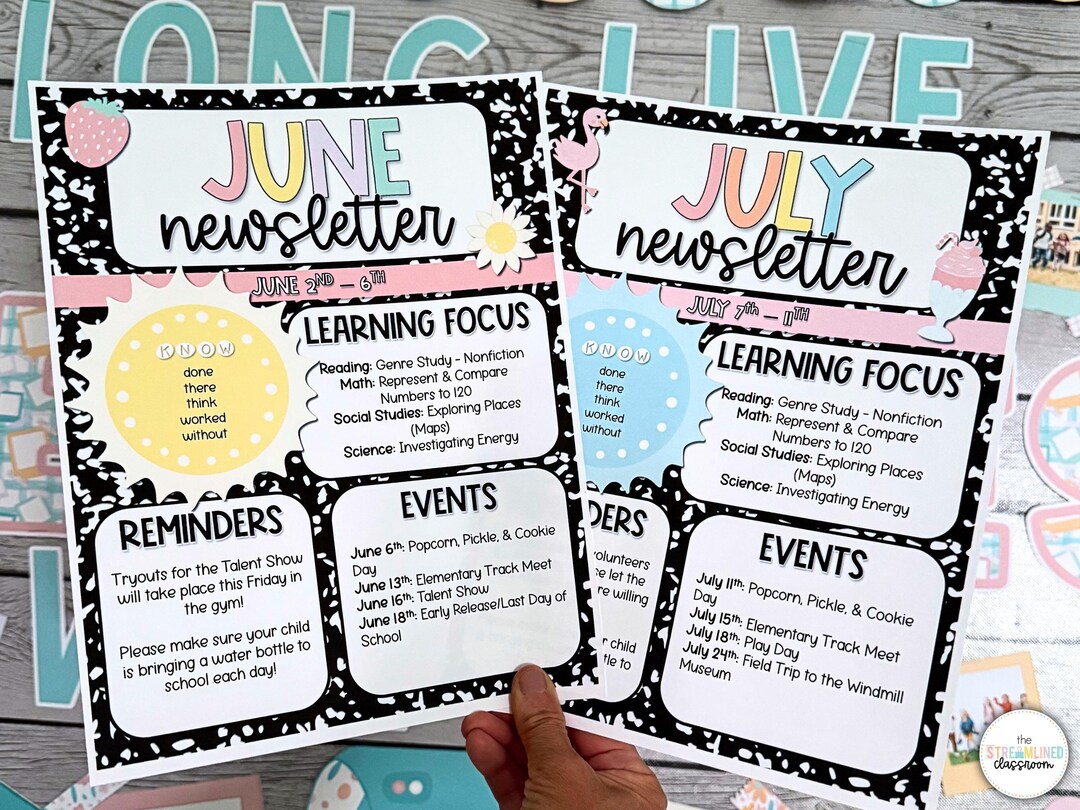 LONG LIVE
JUNE
newsletter
JUNE 2ND – 6TH
KNOW
done
there
think
worked
without
LEARNING FOCUS
Reading: Genre Study - Nonfiction
Math: Represent & Compare
Numbers to 120
Social Studies: Exploring Places
(Maps)
Science: Investigating Energy
REMINDERS
Tryouts for the Talent Show
will take place this Friday in
the gym!
Please make sure your child
is bringing a water bottle to
school each day!
EVENTS
June 6th: Popcorn, Pickle, & Cookie
Day
June 13th: Elementary Track Meet
June 16th: Talent Show
June 18th: Early Release/Last Day of
School
JULY
newsletter
JULY 7th – 11th
KNOW
done
there
think
worked
without
LEARNING FOCUS
Reading: Genre Study - Nonfiction
Math: Represent & Compare
Numbers to 120
Social Studies: Exploring Places
(Maps)
Science: Investigating Energy
DERS
volunteers
let the
willing
child
to
EVENTS
July 11th: Popcorn, Pickle, & Cookie
Day
July 15th: Elementary Track Meet
July 18th: Play Day
July 24th: Field Trip to the Windmill
Museum
the
STREAMLINED
classroom